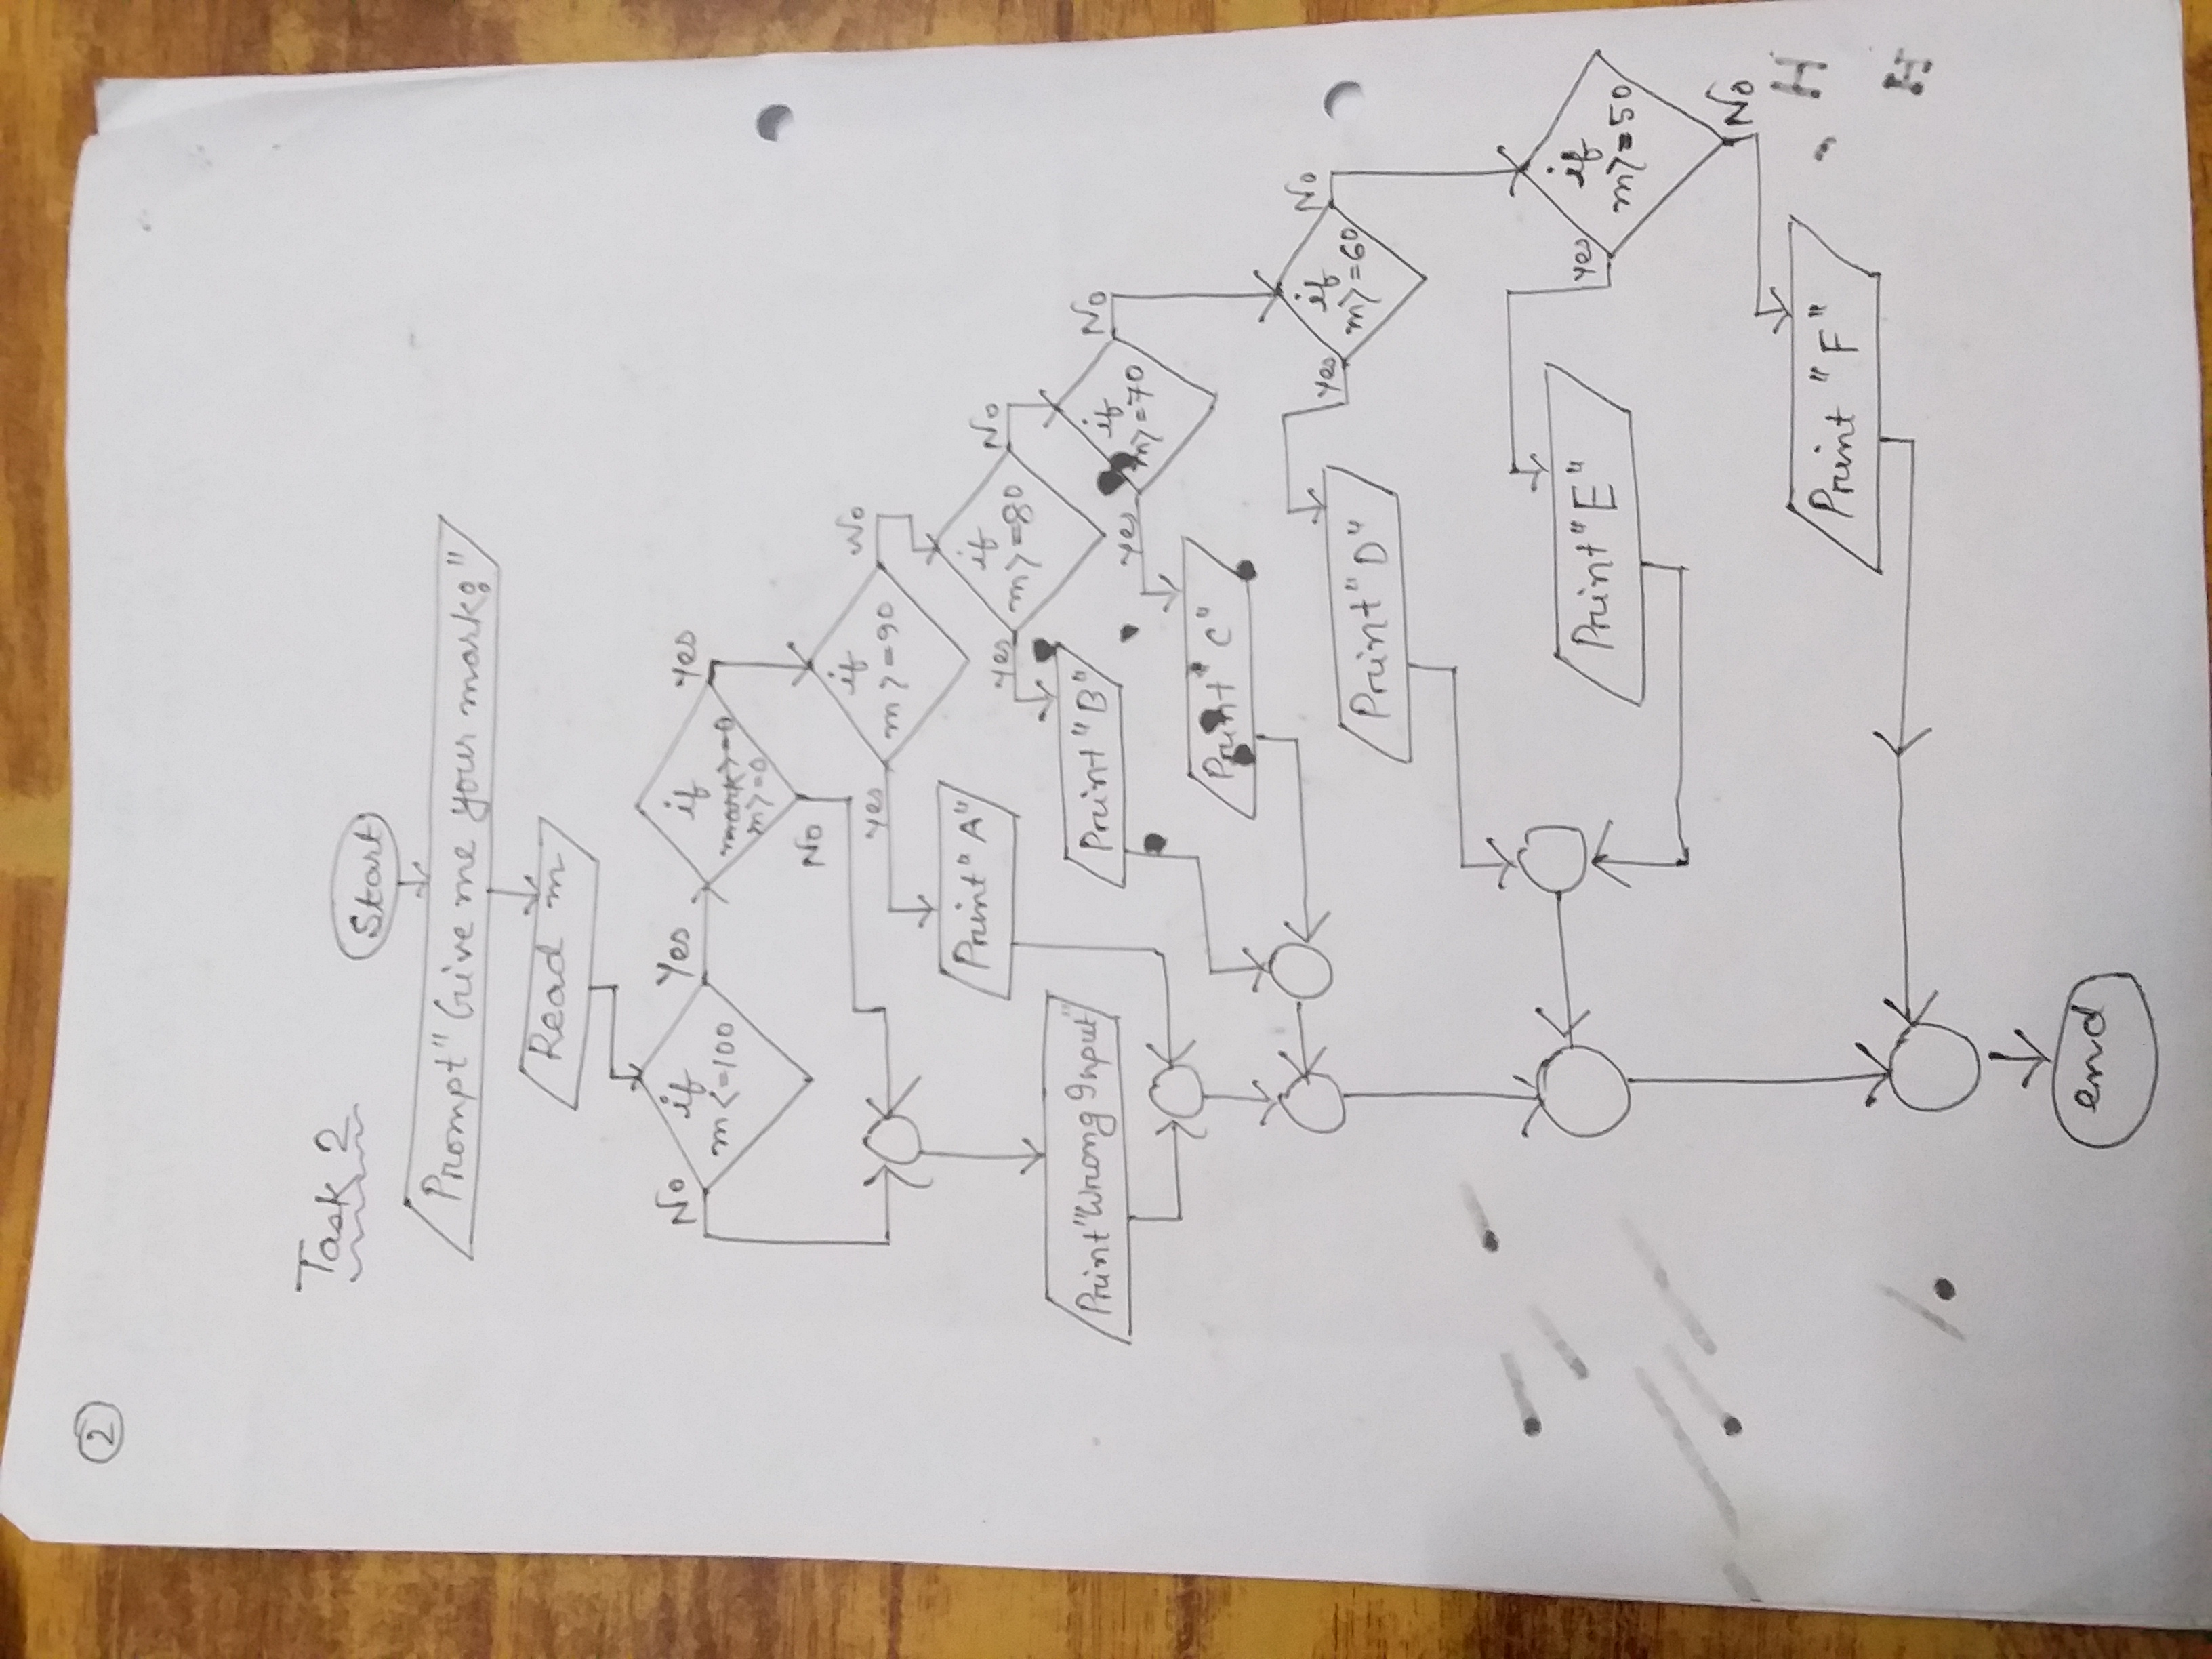 2
Task 2
Start
Prompt "Give me your mark:"
Read m
No
if
m<=100
Yes
if
mark>=0
m>=0
Yes
No
if
m>=90
yes
No
Print "A"
if
m>=80
yes
No
Print "Wrong Input"
Print "B"
if
m>=70
yes
No
Print "C"
if
m>=60
yes
No
Print "D"
if
m>=50
yes
Print "E"
No
Print "F"
end